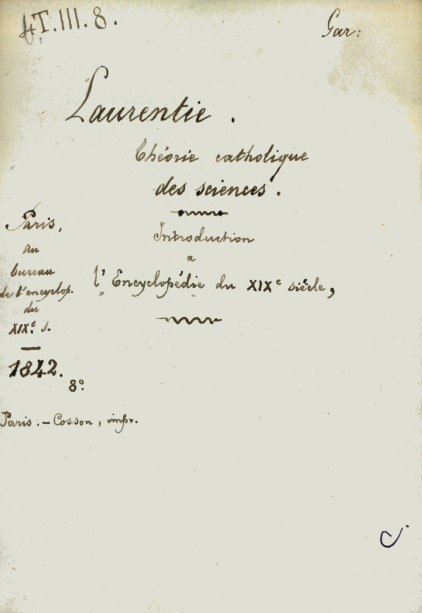 4T.III.8.
Gar:
Laurentie.
Théorie catholique
des sciences.
Introduction
a
l'Encyclopédie du XIXe siècle,
Paris,
au
bureau
de l'encyclop.
du
XIXe s.
1842.
8°
Paris. - Cosson, impr.